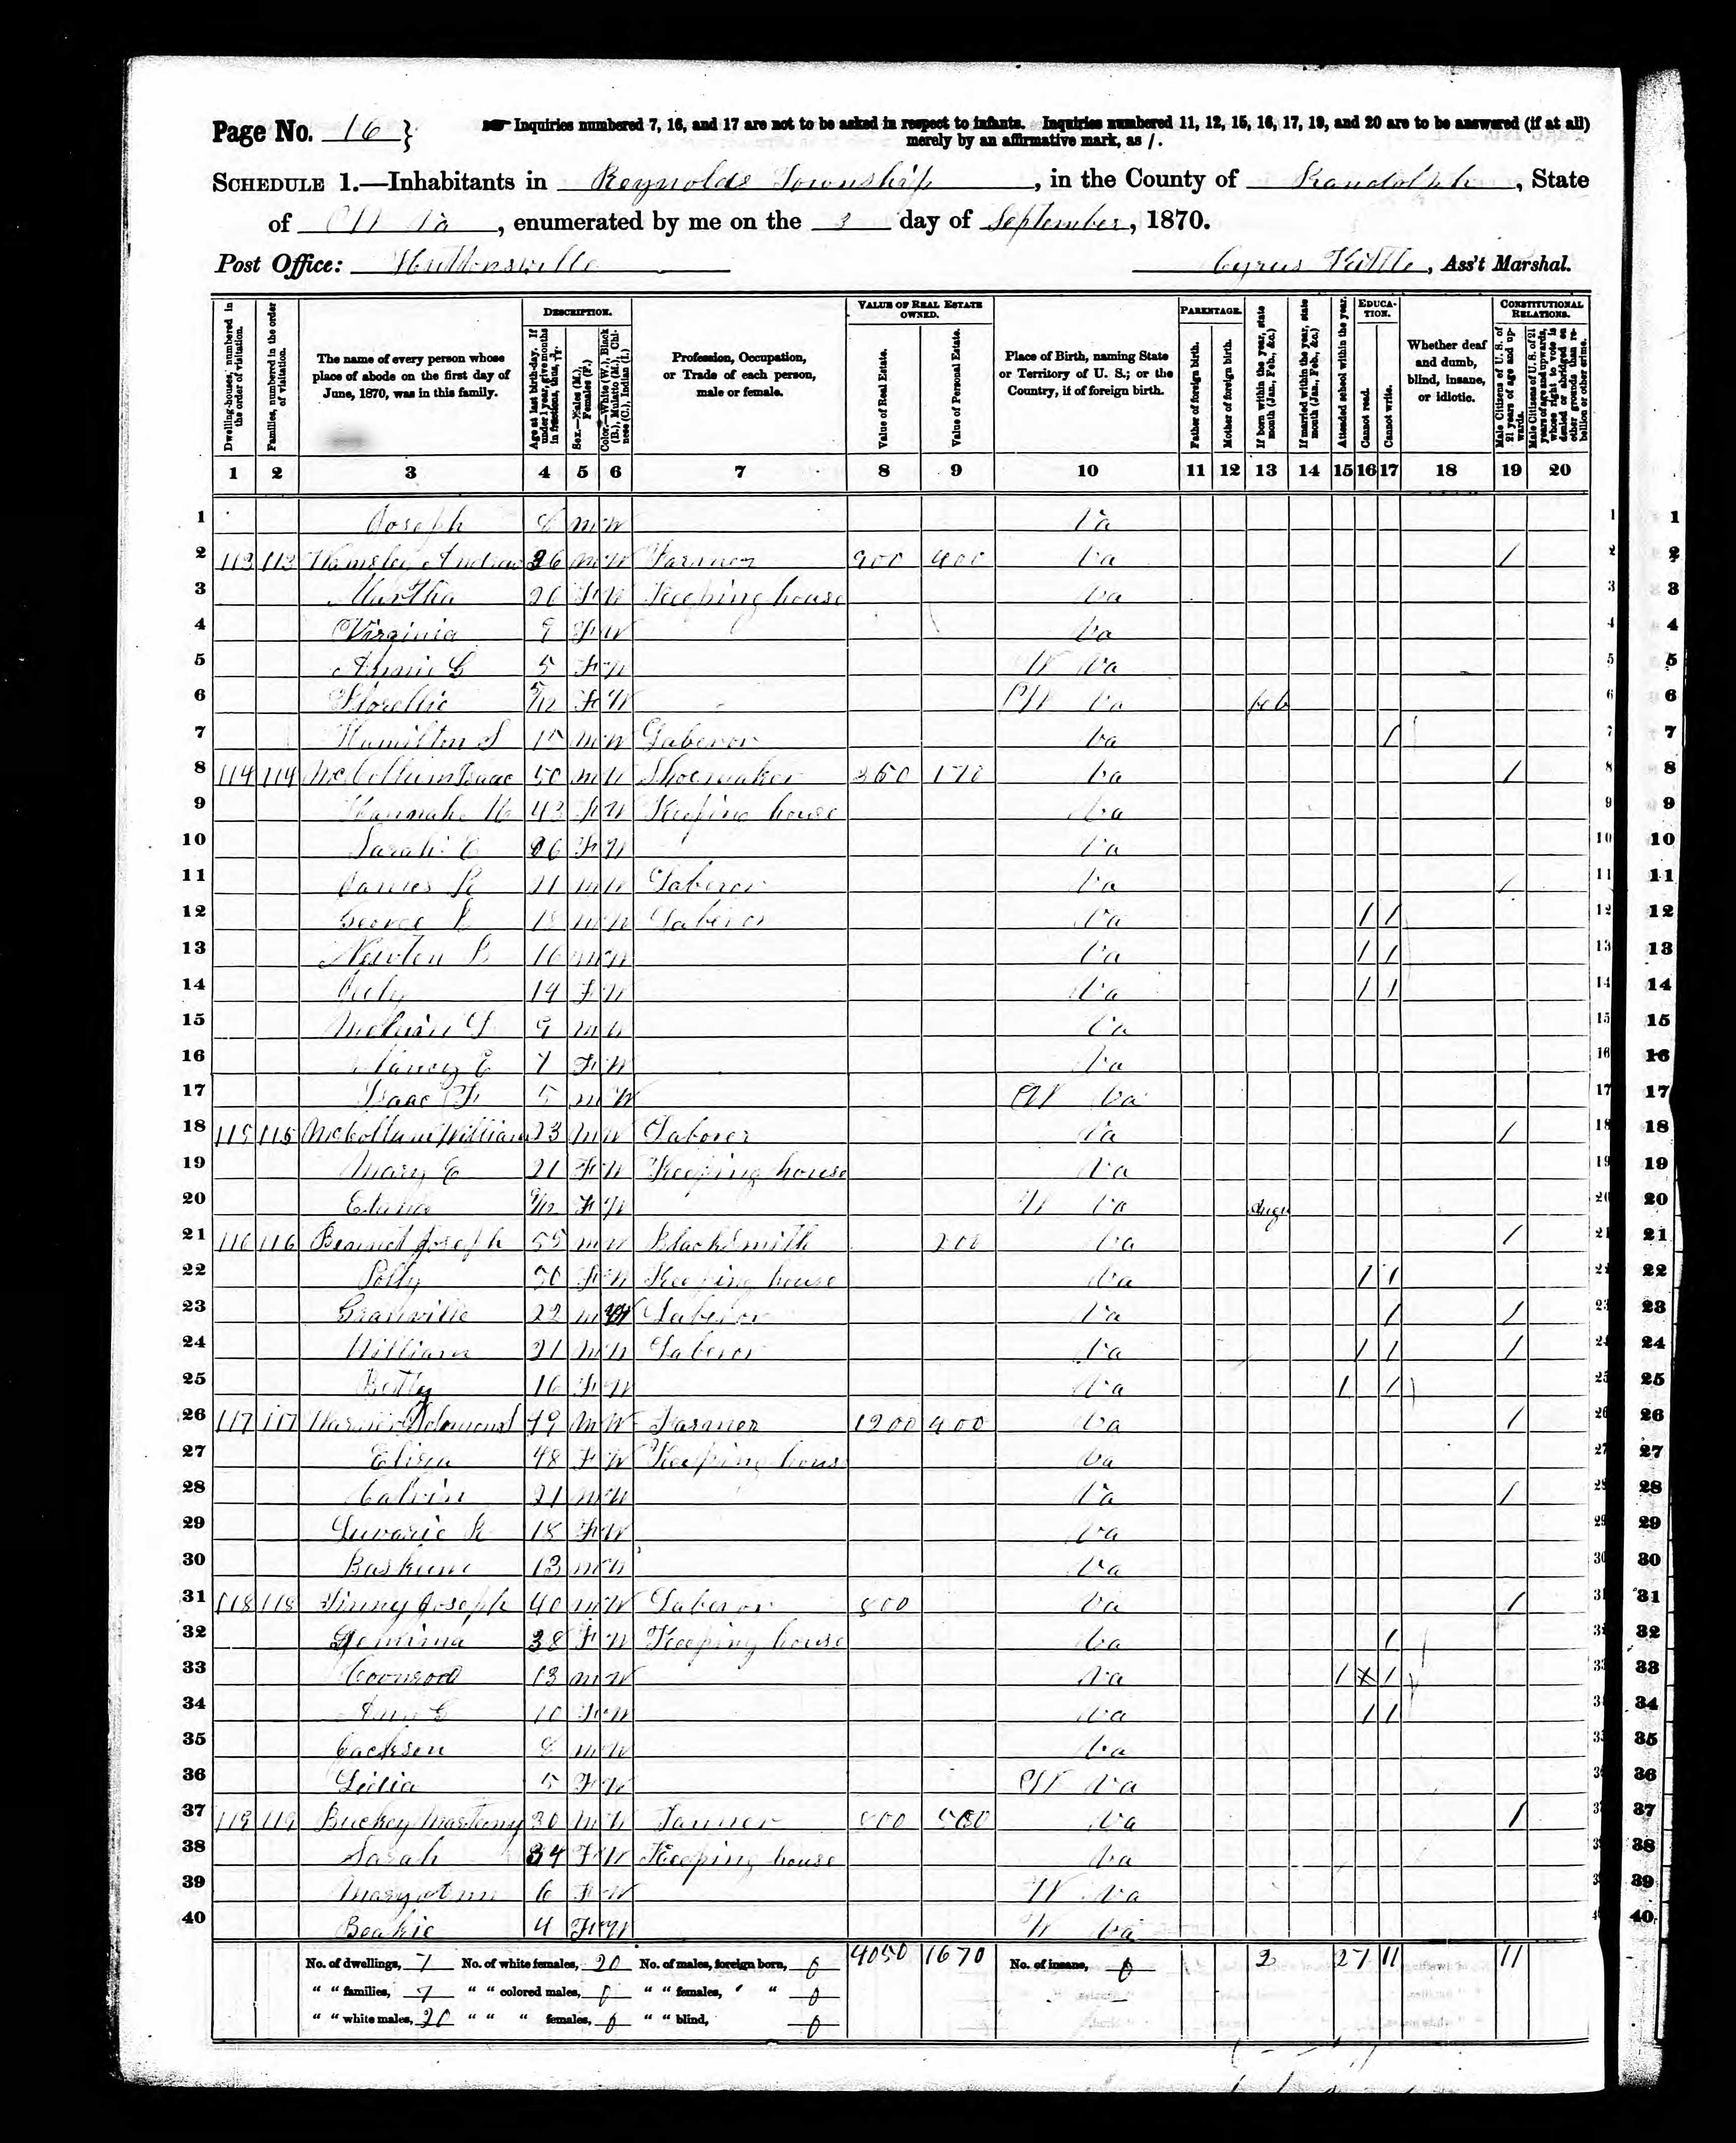 Page No. 16 }
Inquiries numbered 7, 16, and 17 are not to be asked in respect to infants. Inquiries numbered 11, 12, 15, 16, 17, 19, and 20 are to be answered (if at all)
merely by an affirmative mark, as /.
SCHEDULE 1.—Inhabitants in Reynolds Township, in the County of Randolph, State
of W Va, enumerated by me on the 3 day of September, 1870.
Post Office: Huttonsville
Cyrus Kittle, Ass't Marshal.
Dwelling-houses, numbered in the order of visitation.
Families, numbered in the order of visitation.
The name of every person whose place of abode on the first day of June, 1870, was in this family.
DESCRIPTION.
Age at last birth-day. If under 1 year, give months in fractions, thus,
Sex.—Males (M.), Females (F.)
Color.—White (W.), Black (B.), Mulatto (M.), Chinese (C.), Indian (I.)
Profession, Occupation, or Trade of each person, male or female.
VALUE OF REAL ESTATE OWNED.
Value of Real Estate.
Value of Personal Estate.
Place of Birth, naming State or Territory of U. S.; or the Country, if of foreign birth.
PARENTAGE.
Father of foreign birth.
Mother of foreign birth.
If born within the year, state month (Jan., Feb., &c.)
If married within the year, state month (Jan., Feb., &c.)
Attended school within the year.
EDUCATION.
Cannot read.
Cannot write.
Whether deaf and dumb, blind, insane, or idiotic.
CONSTITUTIONAL RELATIONS.
Male Citizens of U. S. of 21 years of age and upwards.
Male Citizens of U. S. of 21 years of age and upwards, whose right to vote is denied or abridged on other grounds than rebellion or other crime.
1 2 3 4 5 6 7 8 9 10 11 12 13 14 15 16 17 18 19 20
1 Joseph 8 M W Va 1
2 113 113 Wamsley Andrew 36 M W Farmer 900 400 Va / 2
3 Martha 26 F W Keeping house Va 3
4 Virginia 9 F W Va 4
5 5 F W W Va 5
6 Florellie 5/12 F W W Va feb 6
7 Hamilton S 15 M W Laberor Va / 7
8 114 114 McCollum Isaac 50 M W Shoemaker 350 170 Va / 8
9 Hannah 43 F W Keeping house Va 9
10 Sarah E 26 F W Va 10
11 James R 21 M W Laberor Va / 11
12 George 18 M W Laberor Va / / 12
13 Newton B 16 M W Va / / 13
14 14 F W Va / / 14
15 9 M W Va 15
16 Nancy E 7 F W Va 16
17 Isaac F 5 M W W Va 17
18 115 115 McCollum William 23 M W Laborer Va / 18
19 Mary E 21 F W Keeping house Va 19
20 9/12 F W W Va Augu 20
21 116 116 Joseph 55 M W BlackSmith 200 Va / 21
22 Polly 50 F W Keeping house Va / / 22
23 Granville 22 M W Laberor Va / / 23
24 William 21 M W Laberor Va / / / 24
25 Betty 16 F W Va / / 25
26 117 117 49 M W Farmer 1200 400 Va / 26
27 Eliza 48 F W Keeping house Va 27
28 Calvin 21 M W Va / 28
29 18 F W Va 29
30 13 M W Va 30
31 118 118 Joseph 40 M W Laberor 800 Va / 31
32 Jemima 38 F W Keeping house Va / 32
33 Coonrod 13 M W Va / x / 33
34 10 F W Va / / 34
35 Jackson 8 M W Va 35
36 5 F W W Va 36
37 119 119 Buckey 30 M W Tanner 800 Va / 37
38 Sarah 34 F W Keeping house Va 38
39 Mary Ann 6 F W W Va 39
40 4 F W W Va 40
No. of dwellings, 7 No. of white females, 20 No. of males, foreign born, 0 4050 1670 No. of insane, 0 2 2 7 11 11
" " families, 7 " " colored males, 0 " " females, " " 0
" " white males, 20 " " " females, 0 " " blind, 0